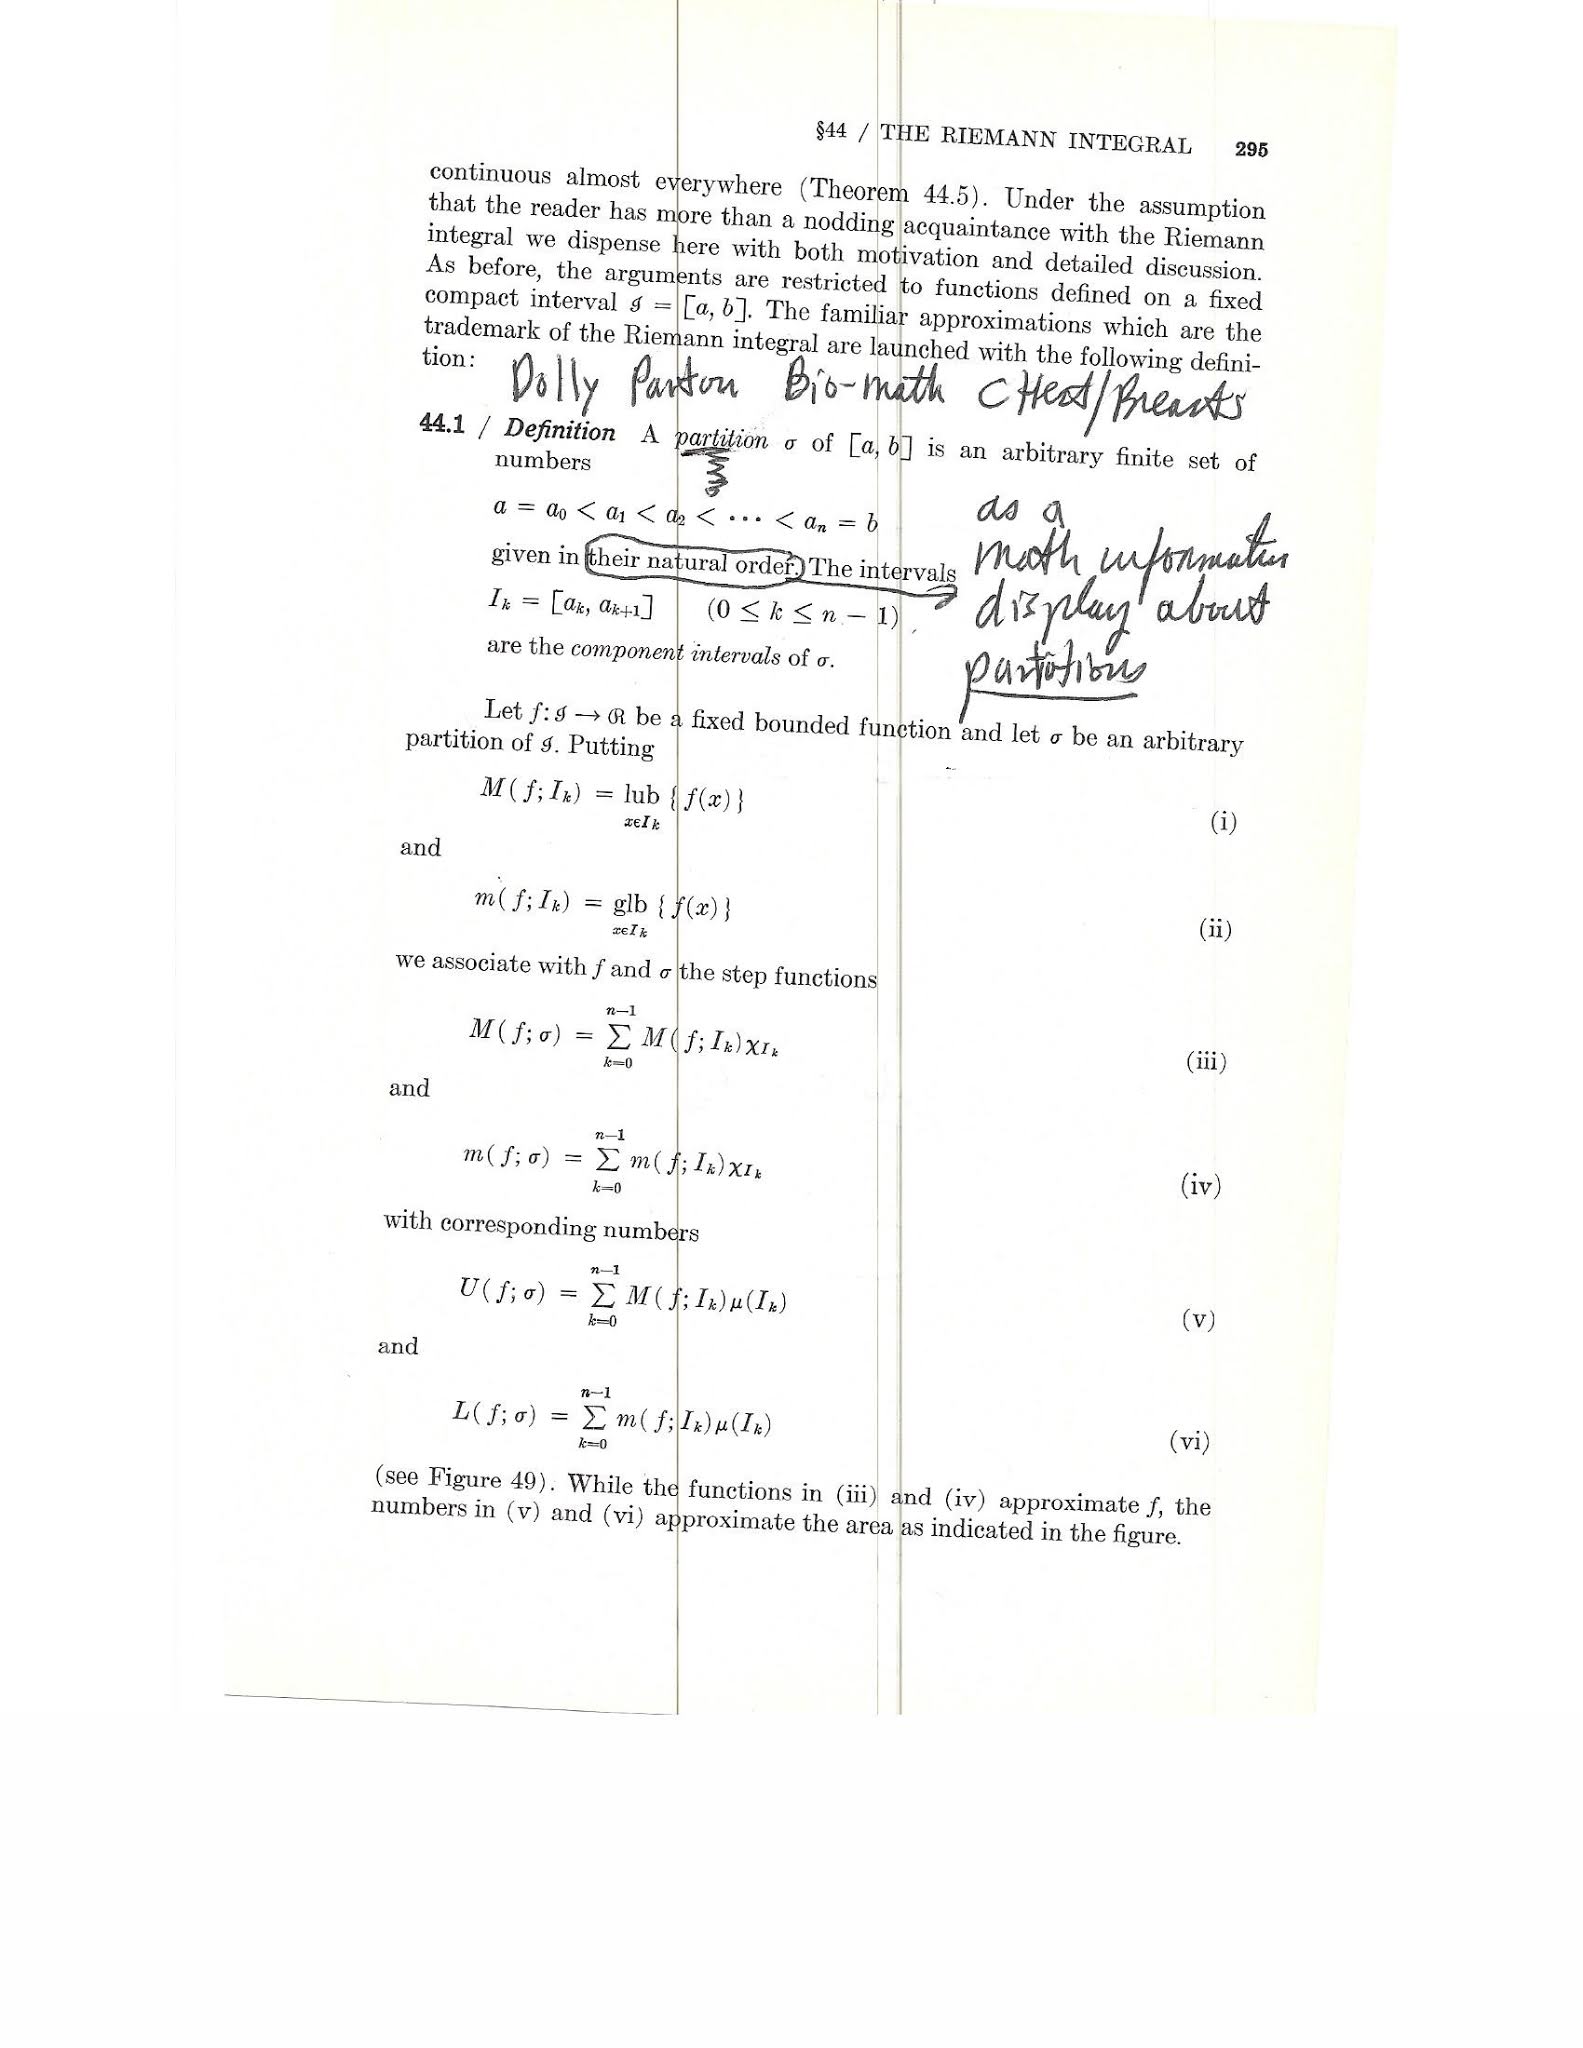 §44 / THE RIEMANN INTEGRAL 295
continuous almost everywhere (Theorem 44.5). Under the assumption
that the reader has more than a nodding acquaintance with the Riemann
integral we dispense here with both motivation and detailed discussion.
As before, the arguments are restricted to functions defined on a fixed
compact interval 𝓘 = [a, b]. The familiar approximations which are the
trademark of the Riemann integral are launched with the following defini-
tion:
Dolly Parton Bio-math CHest/Breasts
44.1 / Definition A partition σ of [a, b] is an arbitrary finite set of
numbers
a = a₀ < a₁ < a₂ < ··· < aₙ = b
as a
given in their natural order. The intervals
math information
Iₖ = [aₖ, aₖ₊₁] (0 ≤ k ≤ n − 1)
display about
are the component intervals of σ.
partitions
Let f: 𝓘 → ℛ be a fixed bounded function and let σ be an arbitrary
partition of 𝓘. Putting
M(f; Iₖ) = lub {f(x)} (i)
x∈Iₖ
and
m(f; Iₖ) = glb {f(x)} (ii)
x∈Iₖ
we associate with f and σ the step functions
n−1
M(f; σ) = Σ M(f; Iₖ)χIₖ (iii)
k=0
and
n−1
m(f; σ) = Σ m(f; Iₖ)χIₖ (iv)
k=0
with corresponding numbers
n−1
U(f; σ) = Σ M(f; Iₖ)μ(Iₖ) (v)
k=0
and
n−1
L(f; σ) = Σ m(f; Iₖ)μ(Iₖ) (vi)
k=0
(see Figure 49). While the functions in (iii) and (iv) approximate f, the
numbers in (v) and (vi) approximate the area as indicated in the figure.